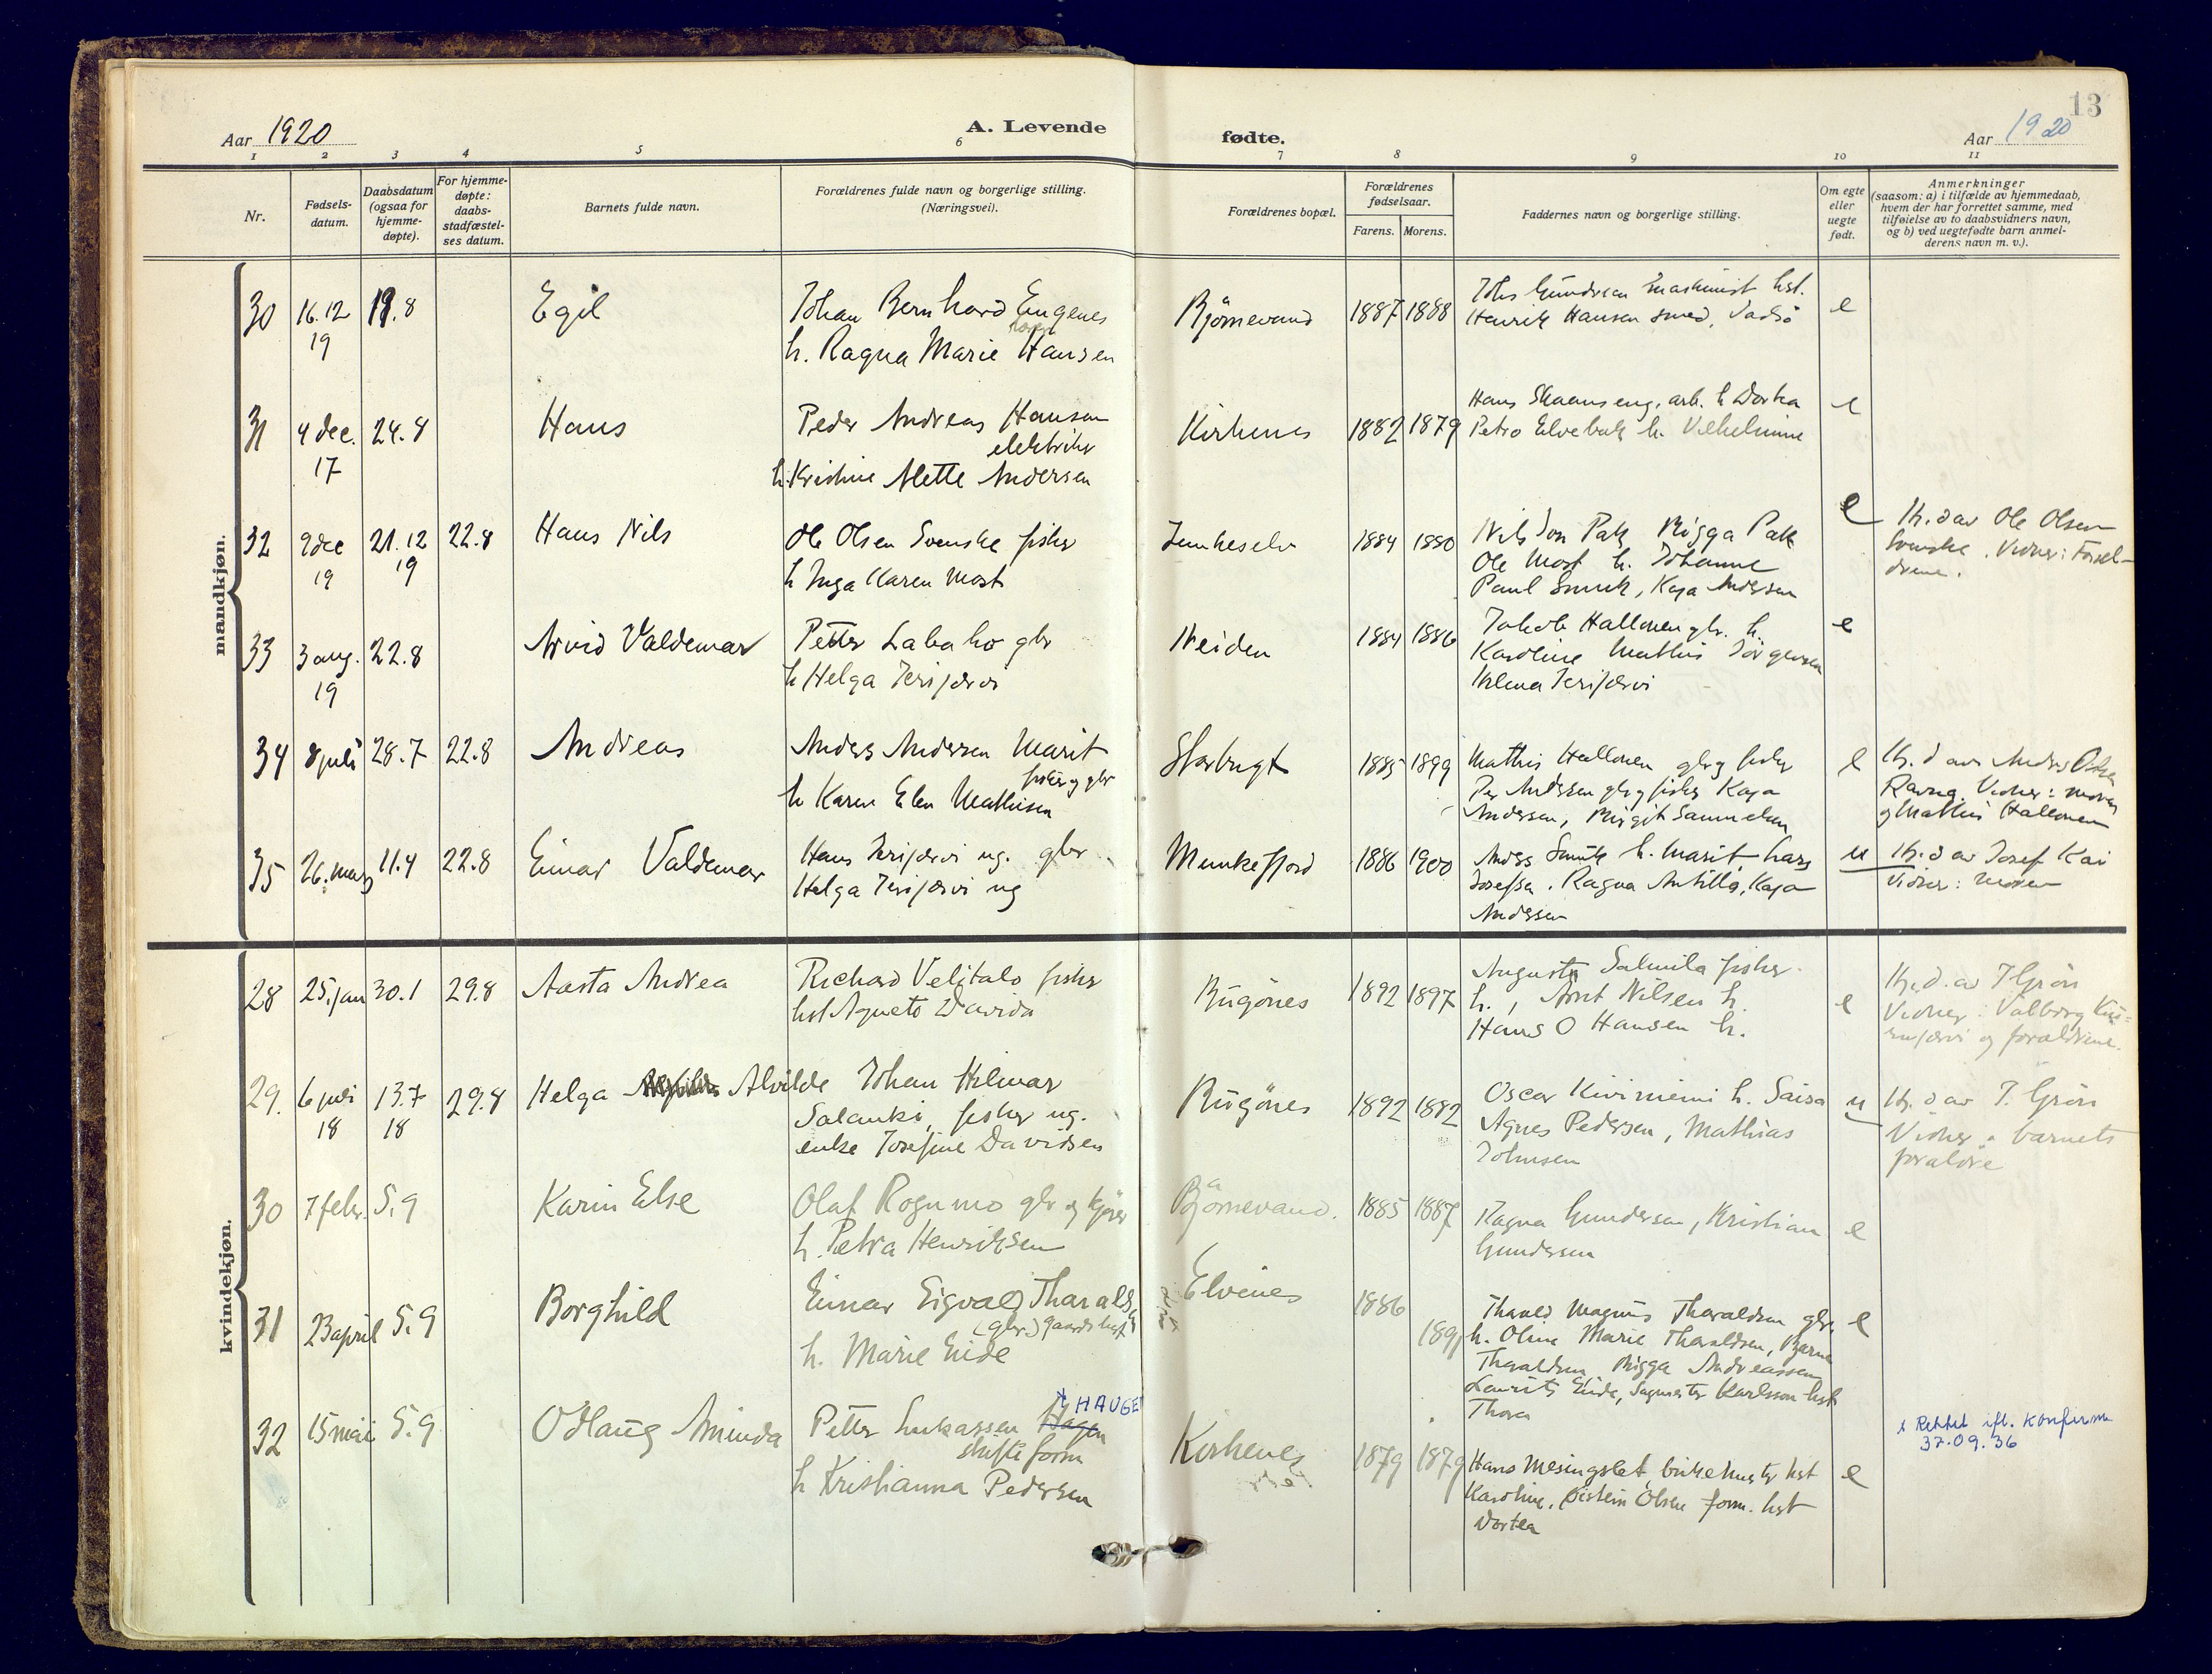 Aar 1920
A. Levende
fødte.
Aar 1920
13
1 2 3 4 5 6 7 8 9 10 11
Nr.
Fødsels-
datum.
Daabsdatum
(ogsaa for
hjemme-
døpte).
For hjemme-
døpte:
daabs-
stadfæstel-
ses datum.
Barnets fulde navn.
Forældrenes fulde navn og borgerlige stilling.
(Næringsvei).
Forældrenes bopæl.
Forældrenes
fødselsaar.
Farens. Morens.
Faddernes navn og borgerlige stilling.
Om egte
eller
uegte
født.
Anmerkninger
(saasom: a) i tilfælde av hjemmedaab,
hvem der har forrettet samme, med
tilføielse av to daabsvidners navn,
og b) ved uegtefødte barn anmel-
derens navn m. v.).
mandkjøn.
30 16.12 19.8 Egil Johan Bernhard Eugenes Bjørnevand 1887 1888 Johs Gundersen maskinist hst. e
19 h. Ragna Marie Hansen Henrik Hansen smed, Vadsö
31 4 dec. 24.8 Hans Peder Andreas Hansen Kirkenes 1882 1879 Hans Skaanseng, arb. h Dortea e
17 elektriker Petro Elvebak h. Vilhelmine
h. Kristine Mette Andersen
32 9 dec 21.12 22.8 Hans Nils Ole Olsen Svenske fisker 1884 1880 Nils Jon Pak Rigga Pak e Hj. d av Ole Olsen
19 19 h Inga Karen Most Ole Most h. Johanne Svenske. Vidner: Forel-
Paul Smuk, Kaja Andersen drene.
33 3 aug. 22.8 Arvid Valdemar Petter Labaho gbr Neiden 1884 1886 Jakob Hallonen gbr. h. e
19 h Helga Jerijærvi Karoline Mathis Jörgensen
Hilma Jerijærvi
34 8 juli 28.7 22.8 Andreas Anders Andersen Marit Storbugt 1885 1899 Mathis Hallonen gbr g fisker e Hj. d av Anders Olsen
fisker g gbr Per Andersen gbr g fisker Kaja Ravna. Vidner: moren
h Karen Elen Mathisen Andersen, Birgit Samuelsen g Mathis Hallonen
35 26. mars 11.4 22.8 Einar Valdemar Hans Jerijærvi ug. gbr Munkefjord 1886 1900 Anders Smuk h. Marit Lars u Hj. d av Josef Kai
Helga Jerijærvi ug Josefsen. Ragna Antilla, Kaja Vidner: Moren
Andersen
kvindekjøn.
28 25. jan 30.1 29.8 Aasta Andrea Richard Velitalo fisker Bugönes 1892 1897 Augusta Salmila fisker e Hj. d. av J Grön
hst Agneta Davida h., Arnt Nilsen h. Vidner: Valborg
Hans O Hansen h. og forældrene.
29. 6 juli 13.7 29.8 Helga Alvilde Johan Hilmar Bugönes 1892 1882 Oscar Kiviniemi h. Saisa u Hj. d av J. Grön
18 18 Salanki, fisker ug. Agnes Pedersen, Mathias Vidner: barnets
enke Josefine Davidsen Johnsen forældre
30 7 febr. 5.9 Karin Else Olaf Rognmo gbr og kjører Bjørnevand. 1885 1887 Ragna Gundersen, Kristian e
h. Petra Henriksen Gundersen
31 23 april 5.9 Borghild Einar Sigvald Tharalds Elvenes 1886 1891 Tharald Magnus Tharaldsen gbr. e
(gbr.) h. Oline Marie Tharaldsen, Bjarne
h. Marie Eide Tharaldsen, Rigga Andreassen
Laurits Eide, Sagmester Karlsson hst
Thora
32 15 mai 5.9 Odlaug Aminda Petter Lukassen Hagen x HAUGE Kirkenes 1879 1879 Hans Mesingslet, hst e x Rettet ifl. konfirm
skifteform Karoline, Øistein Olsen form. hst 37.09.36
h Kristianna Pedersen Dortea